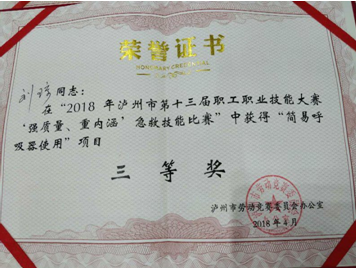 荣誉证书
HONORARY CREDENTIAL
同志：
在“2018 年泸州市第十三届职工职业技能大赛
‘强质量、重内涵’急救技能比赛”中获得“简易呼
吸器使用”项目
三等奖
泸州市劳动竞赛委员会办公室
2018 年 4 月